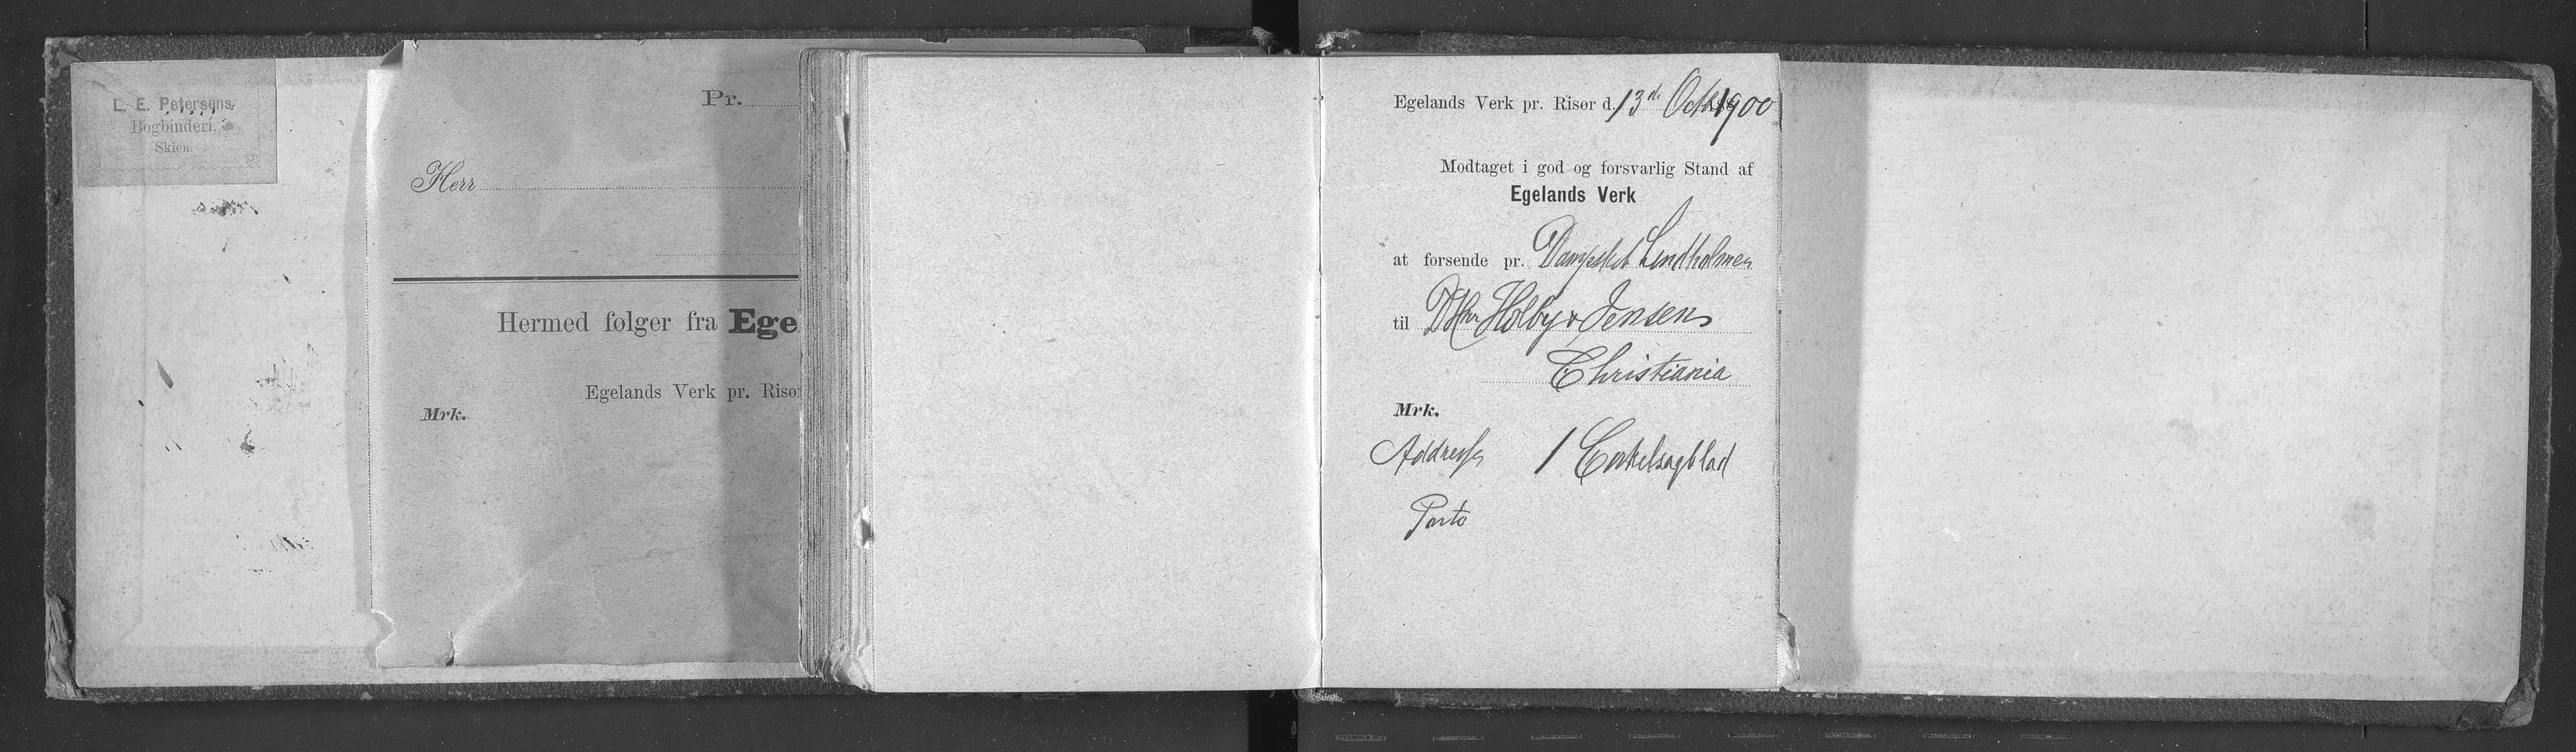 L. E. Petersens
Bogbinderi.
Skien.
Pr.
Herr
Hermed følger fra Ege
Egelands Verk pr. Risør
Mrk.
Egelands Verk pr. Risør d. 13d Octb 1900
Modtaget i god og forsvarlig Stand af
Egelands Verk
at forsende pr. Dampskib Lindholmen
til DHrr Holby & Jensen
Christiania
Mrk.
Addresse 1 Cirkelsagblad
Porto